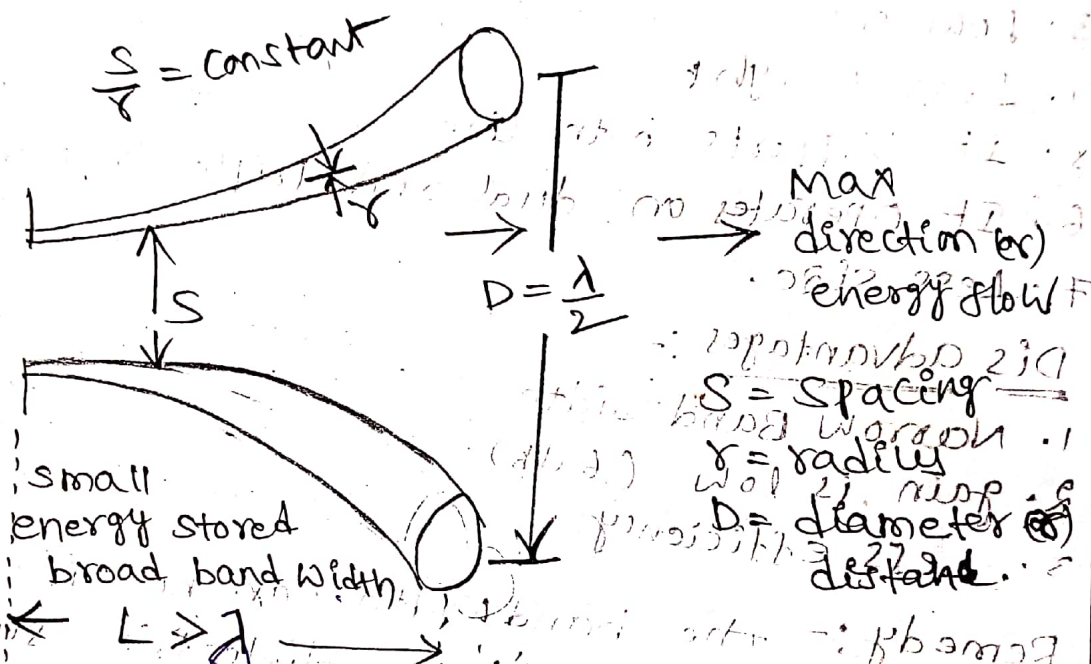 S/r = Constant
r
S
D = λ/2
Max
direction (or)
energy flow
S = Spacing
r = radius
D = diameter (or)
small
energy stored
broad band width
L > λ